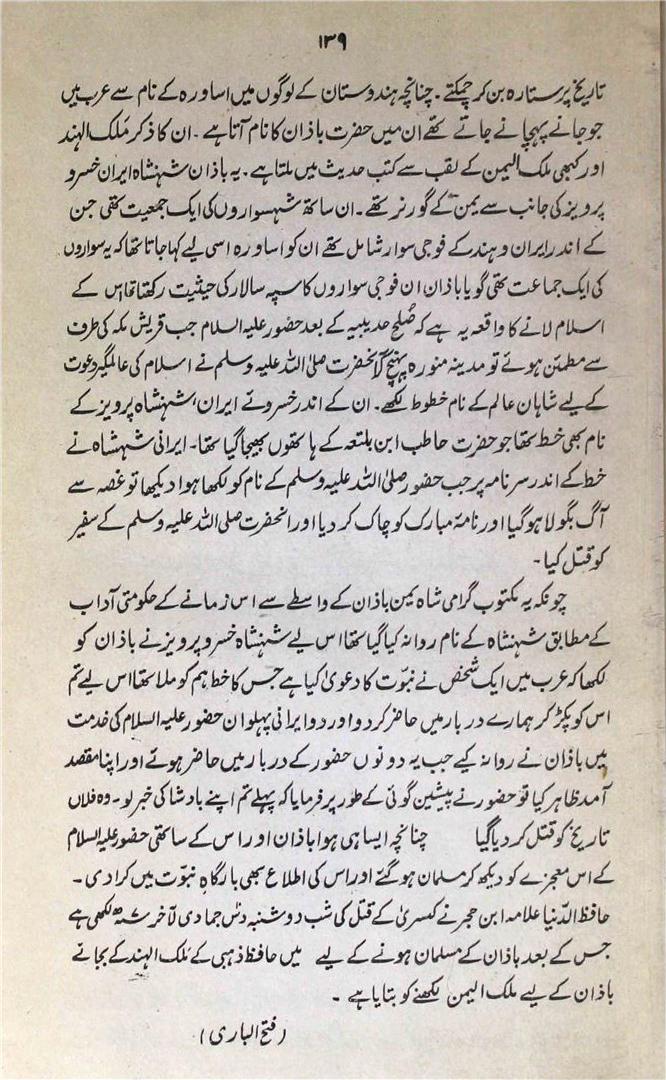 ۱۳۹
تاریخ پر ستارہ بن کر چمکتے ۔ چنانچہ ہندوستان کے لوگوں میں اساورہ کے نام سے عرب میں
جو جانے پہچانے جاتے تھے ان میں حضرت باذان کا نام آتا ہے ۔ ان کا ذکر مَلک الہند
اور کبھی ملک الیمن کے لقب سے کتب حدیث میں ملتا ہے ۔ یہ باذان شہنشاہ ایران خسرو
پرویز کی جانب سے یمن کے گورنر تھے ۔ ان ساتھ شہسواروں کی ایک جمعیت تھی جن
کے اندر ایران و ہند کے فوجی سوار شامل تھے ان کو اساورہ اسی لیے کہا جاتا تھا کہ یہ سواروں
کی ایک جماعت تھی گویا باذان ان فوجی سواروں کا سپہ سالار کی حیثیت رکھتا تھا اس کے
اسلام لانے کا واقعہ یہ ہے کہ صُلح حدیبیہ کے بعد حضور علیہ السلام جب قریش مکہ کی طرف
سے مطمئن ہوئے تو مدینہ منورہ پہنچ کر آنحضرت صلی اللہ علیہ وسلم نے اسلام کی عالمگیر دعوت
کے لیے شاہان عالم کے نام خطوط لکھے ۔ ان کے اندر خسروئے ایران، شہنشاہ پرویز کے
نام بھی خط تھا جو حضرت حاطب ابن بلتعہ کے ہاتھوں بھیجا گیا تھا ۔ ایرانی شہنشاہ نے
خط کے اندر سر نامہ پر جب حضور صلی اللہ علیہ وسلم کے نام کو لکھا ہوا دیکھا تو غصہ سے
آگ بگولا ہو گیا اور نامۂ مبارک کو چاک کر دیا اور انحضرت صلی اللہ علیہ وسلم کے سفیر
کو قتل کیا ۔
چونکہ یہ مکتوب گرامی شاہ یمن باذان کے واسطے سے اس زمانے کے حکومتی آداب
کے مطابق شہنشاہ کے نام روانہ کیا گیا تھا اس لیے شہنشاہ خسرو پرویز نے باذان کو
لکھا کہ عرب میں ایک شخص نے نبوّت کا دعویٰ کیا ہے جس کا خط ہم کو ملا تھا اس لیے تم
اس کو پکڑ کر ہمارے دربار میں حاضر کر دو اور دو ایرانی پہلوان حضور علیہ السلام کی خدمت
میں باذان نے روانہ کیے جب یہ دونوں حضور کے دربار میں حاضر ہوئے اور اپنا مقصد
آمد ظاہر کیا تو حضور نے پیشین گوئی کے طور پر فرمایا کہ پہلے تم اپنے بادشا کی خبر لو ۔ وہ فلاں
تاریخ کو قتل کر دیا گیا چنانچہ ایسا ہی ہوا باذان اور اس کے ساتھی حضور علیہ السلام
کے اس معجزے کو دیکھ کر مسلمان ہو گئے اور اس کی اطلاع بھی بارگاہِ نبوّت میں کرا دی ۔
حافظ الدّنیا علامہ ابن حجر نے کسریٰ کے قتل کی شب دوشنبہ دس جمادی لآخر لکھی ہے
جس کے بعد باذان کے مسلمان ہونے کے لیے میں حافظ ذہبی کے مَلک الہند کے بجائے
باذان کے لیے ملک الیمن لکھنے کو بتایا ہے ۔
(فتح الباری)